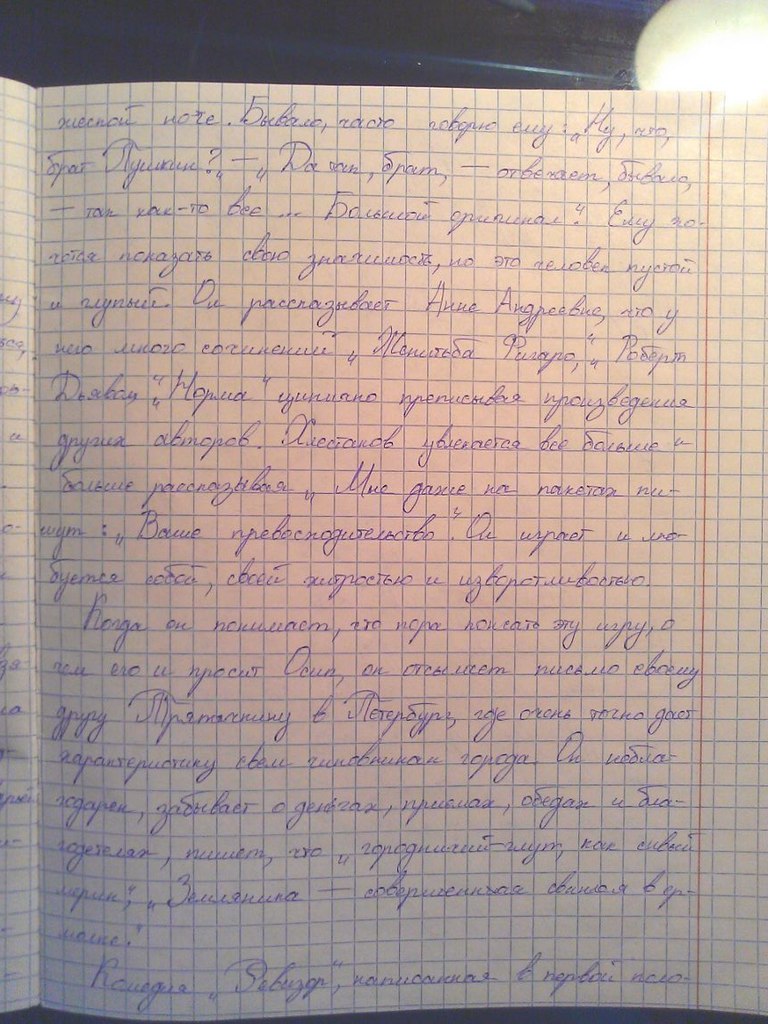 жеской ноге. Бывало, часто говорю ему: „Ну, что,
брат Пушкин?" — „Да так, брат, — отвечает, бывало,
— так как-то все ... Большой оригинал". Ему хо-
чется показать свою значимость, но это человек пустой
и глупый. Он рассказывает Анне Андреевне, что у
него много сочинений „Женитьба Фигаро", „Роберт
Дьявол", „Норма" цинично преписывая произведения
других авторов. Хлестаков увлекается все больше и
больше рассказывая „Мне даже на пакетах пи-
шут: „Ваше превосходительство". Он играет и лю-
буется собой, своей хитростью и изворотливостью.
Когда он понимает, что пора кончать эту игру, о
чем его и просит Осип, он отсылает письмо своему
другу Тряпичкину в Петербург, где очень точно дает
характеристику всем чиновникам города. Он небла-
годарен, забывает о деньгах, приемах, обедах и бла-
годетелях, пишет, что „городничий-глуп, как сивый
мерин", „Земляника — совершенная свинья в ер-
молке."
Комедия „Ревизор", написанная в первой поло-